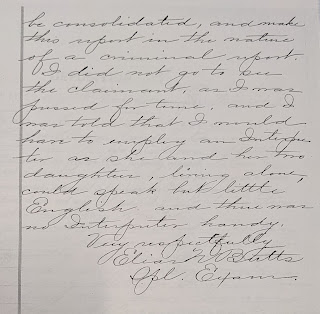 be consolidated, and make
this report in the nature
of a criminal report.
I did not go to see
the claimant, as I was
pressed for time, and I
was told that I would
have to employ an Interpre-
ter as she and her two
daughters, living alone,
could speak but little
English and there was
no Interpreter handy.
Very respectfully
Spl. Exam.